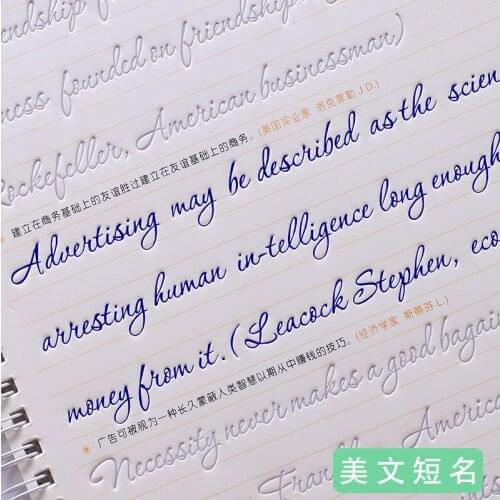 endship
ness founded on friendship
Rockefeller, American businessman)
建立在商务基础上的友谊胜过建立在友谊基础上的商务。(美国实业家 洛克菲勒 J D.)
Advertising may be described as the scien
arresting human in-telligence long enough
money from it. (Leacock Stephen, eco
广告可被视为一种长久蒙蔽人类智慧以期从中赚钱的技巧。(经济学家 斯蒂芬 L.)
Necessity never makes a good bargain
Franklin, America
美文短名